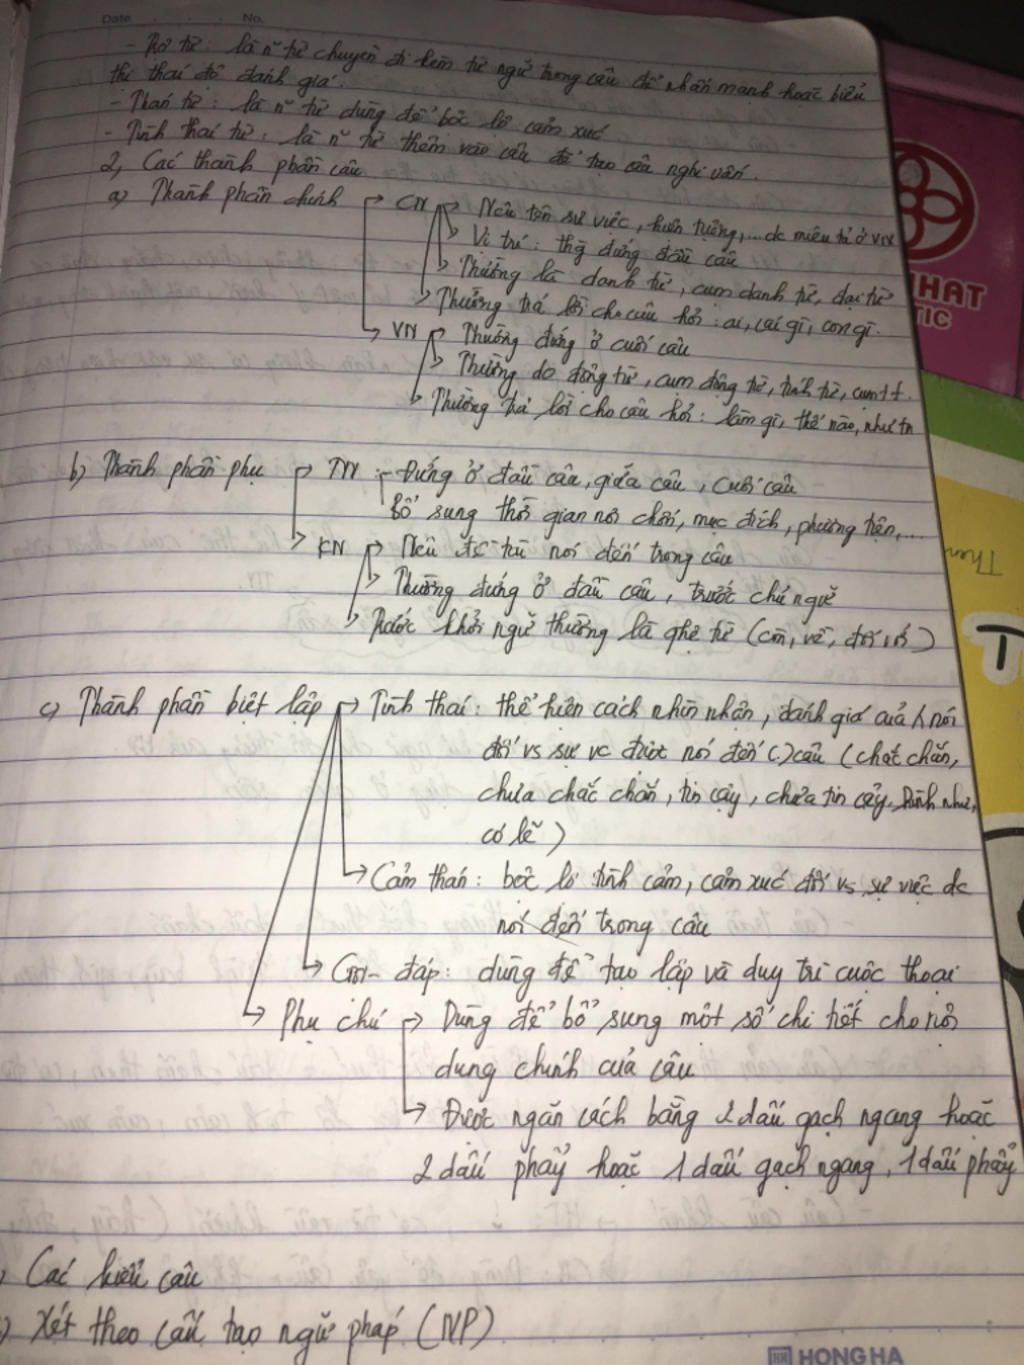 Date . . . No.
- Trợ từ: là n~ từ chuyên đi kèm từ ngữ trong câu để nhấn mạnh hoặc biểu
thị thái độ đánh giá.
- Thán từ: là n~ từ dùng để bộc lộ cảm xúc
- Tình thái từ: là n~ từ thêm vào câu để tạo câu nghi vấn.
2, Các thành phần câu
a) Thành phần chính → CN → Nêu tên sự việc, hiện tượng,... đc miêu tả ở VN
→ Vị trí: thg đứng đầu câu
→ Thường là danh từ, cụm danh từ, đại từ
→ Thường trả lời cho câu hỏi: ai, cái gì, con gì.
→ VN → Thường đứng ở cuối câu
→ Thường do động từ, cụm động từ, tính từ, cụm tt.
→ Thường trả lời cho câu hỏi: làm gì, thế nào, như tn
b) Thành phần phụ → TN - Đứng ở đầu câu, giữa câu, cuối câu
- Bổ sung thời gian nơi chốn, mục đích, phương tiện,...
→ KN → Nêu đề tài nói đến trong câu
→ Thường đứng ở đầu câu, trước chủ ngữ
→ Trước khởi ngữ thường là qhệ từ (còn, về, đối với)
c) Thành phần biệt lập → Tình thái: thể hiện cách nhìn nhận, đánh giá của nói
đối vs sự vc được nói đến (.) câu (chắc chắn,
chưa chắc chắn, tin cậy, chưa tin cậy, hình như,
có lẽ)
→ Cảm thán: bộc lộ tình cảm, cảm xúc đối vs sự việc đc
nói đến trong câu
→ Gọi - đáp: dùng để tạo lập và duy trì cuộc thoại
→ Phụ chú → Dùng để bổ sung một số chi tiết cho nội
dung chính của câu
→ Được ngăn cách bằng 2 dấu gạch ngang hoặc
2 dấu phẩy hoặc 1 dấu gạch ngang, 1 dấu phẩy
Các kiểu câu
) Xét theo cấu tạo ngữ pháp (NP)
HH HONG HA
NHAT
TIC
Then
T